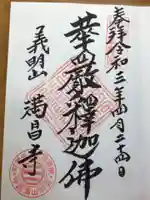 奉拝令和三年四月二十四日
華嚴釋迦佛
義明山
満昌寺